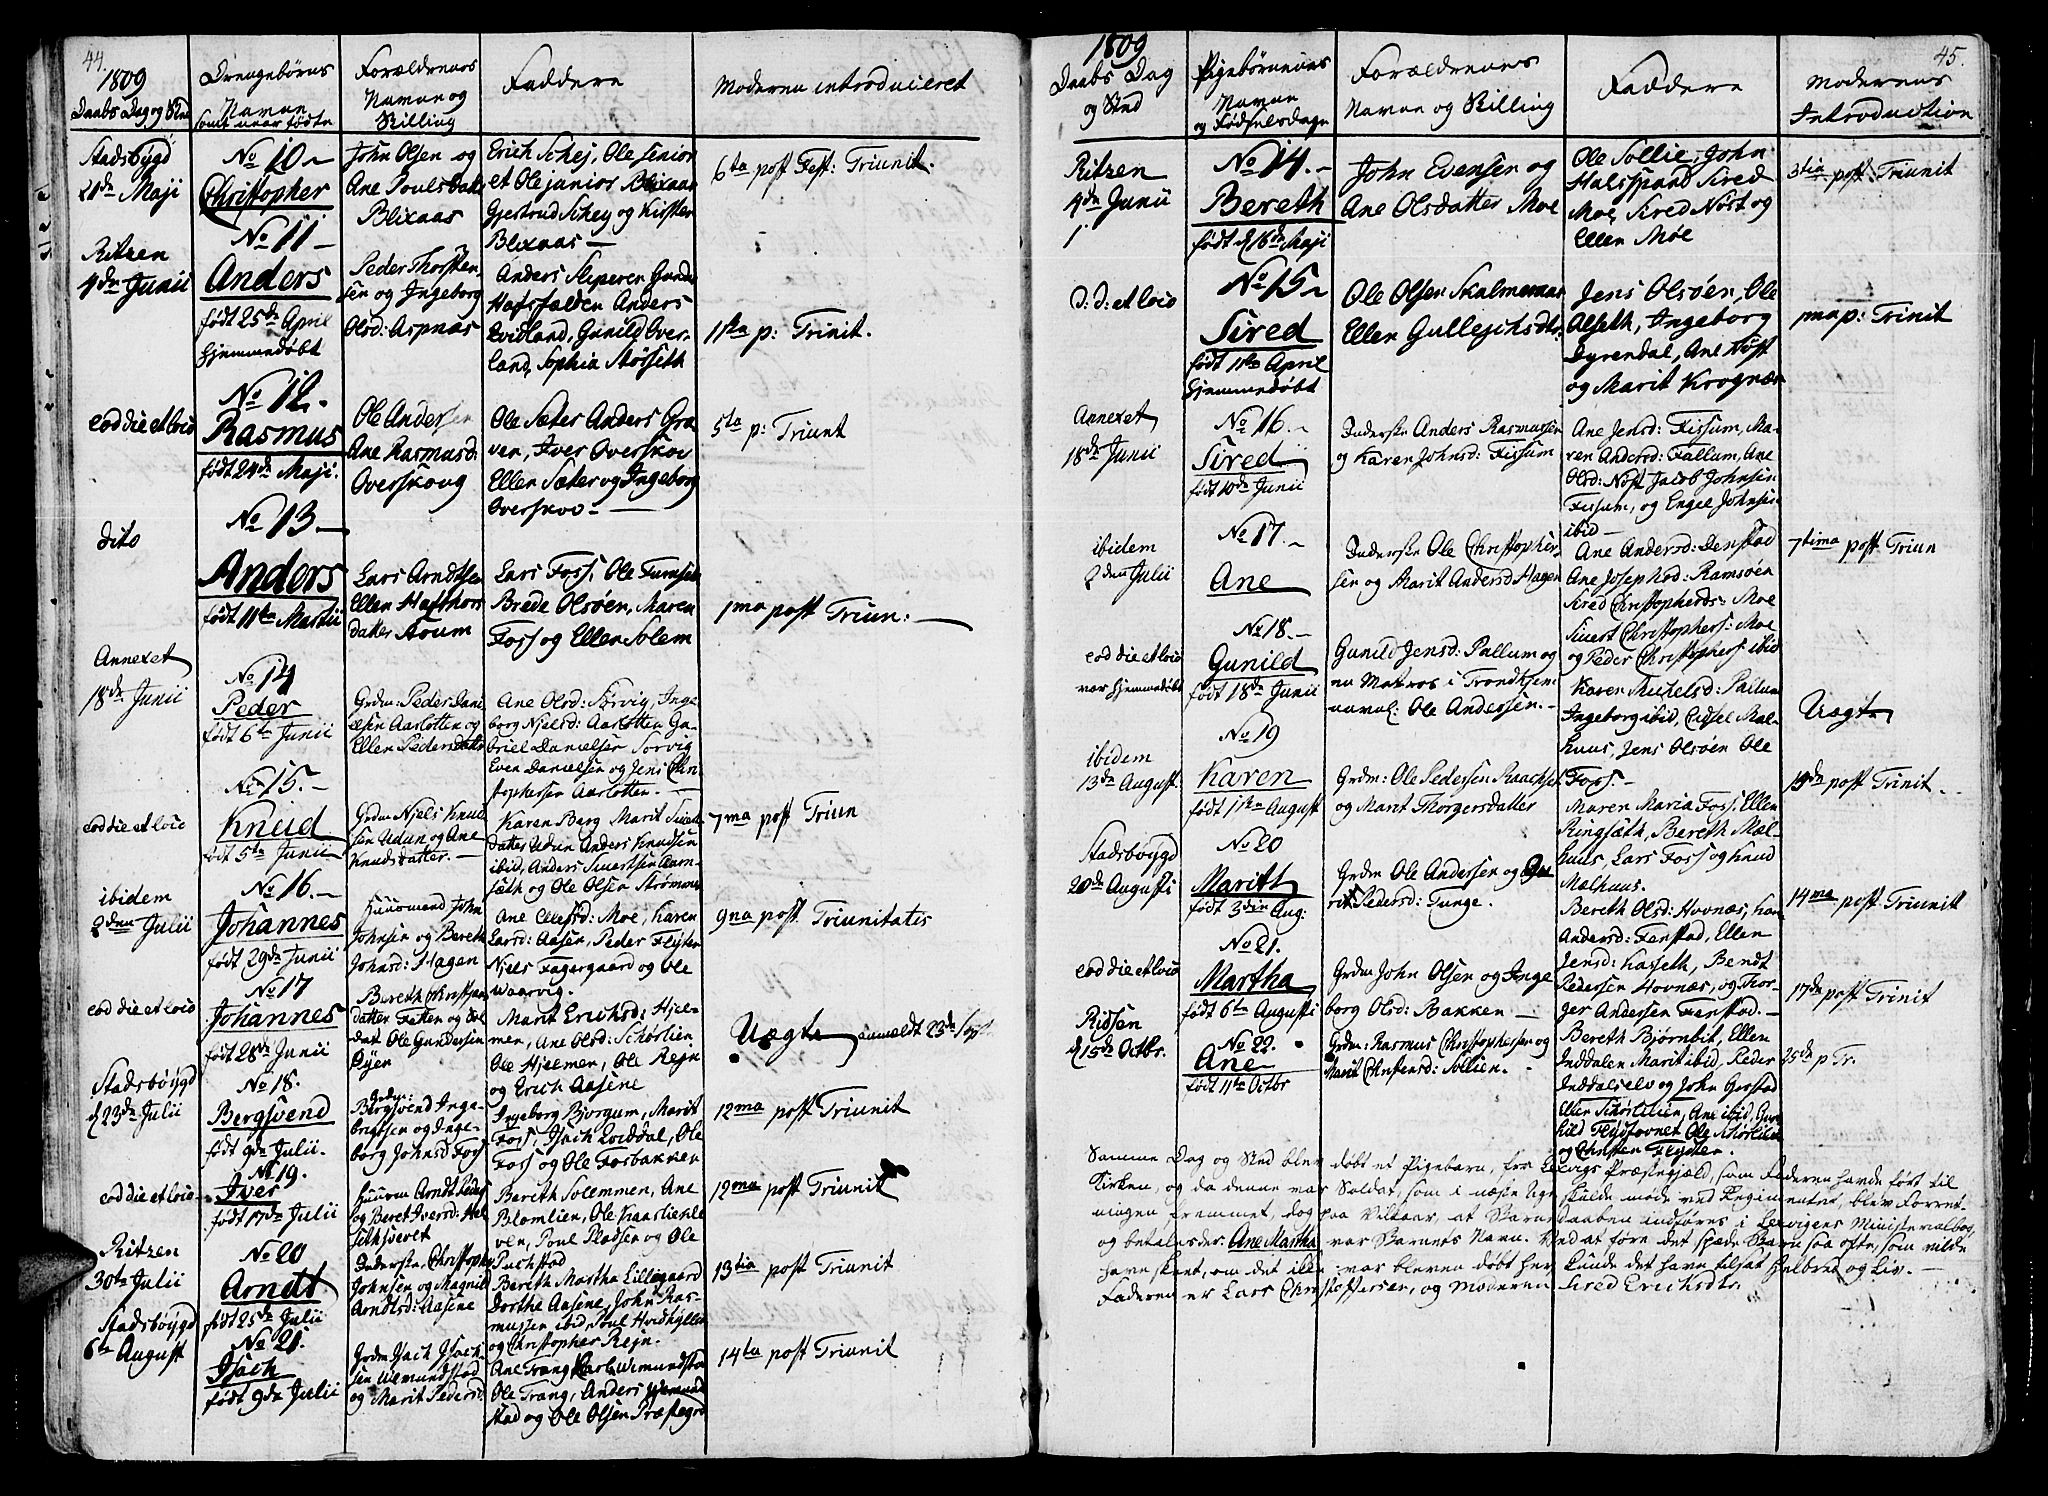 44.
1809
Daabs Dag og Sted
Drengebørns
Navne
samt naar fødte
Forældrenes
Navne og
Stilling
Faddere
Moderen introduceret
Stadsbøygd
21de Maji
No 10
Christopher
John Olsen og
Ane Poulsdatter
Blixaas
Erich Schej, Ole senior
et Ole junior Blixaas
Gjertrud Schey og Kirsten
Blixaas
6ta post Fest: Triunit.
Ritzen
4de Junii
No 11
Anders
født 25de April
hjemmedøbt
Peder Thorsten-
sen og Ingeborg
Olsd: Aspnas
Anders
Anders
Qvidland, Gunild Over-
land, Sophia Støsseth
11ta p: Trinit.
eod die et loco
No 12.
Rasmus
født 24de Maji.
Ole Andersen
Ane Rasmusd:
Overskoug
Ole Sæter Anders Gra-
ven, Iver Overskov
Ellen Sæter og Ingeborg
Overskov
5ta p: Triunt
dito
No 13
Anders
født 11te Martii
Lars Arndtsen
Ellen Hafthors
datter Aoum
Lars Foss, Ole
Brede Olsøen, Maren
Foss og Ellen Solem
1ma post Triun:
Annexet
18de Junii
No 14
Peder
født 6te Junii
Grdm: Peder Dani-
elsen Aarlotten og
Ellen Pedersdatter
Ane Olsd: Sørvig, Inge
borg Njelsd: Aarlotten Ga-
briel Danielsen Sorvig
Even Danielsen og Jens Chri-
stophersen Aarlotten.
eod die et loco
No 15.
Knud
født 5te Junii
Grdm Njels Knud
sen Udun og Ane
Knudsdatter.
Karen Berg Marit Siurs-
datter Udun Anders Knudsen
ibid, Anders Siuertsen Aarn-
sæth og Ole Olsen Strømme
7ma post Triun
ibidem
2den Julii
No 16.
Johannes
født 29de Junii
Huusmand John
Johnsen og Bereth
Johnsd: Hagen
Ane Ellefsd: Moe, Karen
Larsd: Aasen, Peder Flyten
Njels Fagergaard og Ole
Waarvig.
9na post Triunitatis
eod die et loco
No 17
Johannes
født 28de Junii
Bereth Christian
datter Fatten og Sol
dat Ole Gundersen
Øyen
Marit Ericksd: Hjel-
men, Ane Olsd: Schørlien
Ole Hjelmen, Ole Rejn
og Erich Aasene
Uægte anmeldt 23de Sept
Stadsbøygd
d 23de Julii
No 18.
Bergsvend
født 9de Julii.
Grdm:
Bergsvend Inge-
brigtsen og Inge-
borg Johnsd Foss
Ingeborg Bjorgum, Marit
Foss, Isach Qviddal, Ole
Foss og Ole Fosbakken
12ma post Triunit
eod die et loco
No 19.
Iver
født 17de Julii
Huusm Arndt Peders
og Beret Iversd:
Bereth Solemmen, Ane
Blomlien, Ole
ven, Poul Pladsen og Ole
Puchstad
12ma post Triunit
Ritzen
30te Julii
No 20
Arndt
født 25de Julii
Inderste Christoph
Johnsen og Magnil
Arndtsd: Aasene
Bereth Martha Lillegaard
Dorthe Aasene, John Ras-
mussen ibid, Poul Hvidhyllen
og Christopher Rejn.
13tia post Triunit
Stadsbøygd
6te August
No 21.
Isach
født 9de Julii
Grdm Isach Isach
sen Wemundstad
og Marit Pedersd:
Ane Trang Karl Wemundstad
Ole Trang, Anders Wemund
stad og Ole Olsen Præstegrd
14ta post Triunit
45.
1809
Daabs Dag
og Sted
Pigebørnenes
Navne
og Fødselsdage
Forældrenes
Navne og Stilling
Faddere
Moderens
Introduction
Ritzen
4de Junii
No 14.
Bereth
født d 16de Maji
John Evensen og
Ane Olsdatter Moe
Ole Sollie, John
Halsstrand Sired
Moe, Sired Nøst og
Ellen Moe
3tia post Triunit
d: d: et loco
No 15
Sired
født 11te April
hjemmedøbt
Ole Olsen Skalmeraas
Ellen Gullejchsdtr:
Jens Olsøen, Ole
Alseth, Ingeborg
Dyrendal, Ane Nøst
og Marit Krognæs
1ma p: Trinit
Annexet
18de Junii
No 16.
Sired
født 10de Junii
Inderste Anders Rasmussen
og Karen Johnsd: Fissum
Ane Jensd: Fissum, Ma-
ren Andersd: Fallum, Ane
Olsd: Nøst Jacob Johnsen
Fissum, og Engel Johnsen
ibid
ibidem
2den Julii
No 17.
Ane
Inderste Ole Christopher-
sen og Marit Andersd Hagen
Ane Andersd: Denstad
Ane Josephsd: Ramsøen
Sired Christophersd: Moe
Siuert Christophers: Moe
og Peder Christophers: ibid
7tima post Triun
eod die et loco
var hjemmedøbt
No 18.
Gunild
født 18de Junii
Gunild Jensd: Pallum og
en Matros i Trondhjem
navnl: Ole Andersen.
Karen Michelsd: Pallum
Ingeborg ibid, Cidsel Mæl-
huus, Jens Olsøen Ole
Foss.
Uægte
ibidem
13de August.
No 19
Karen
født 11te August
Grdm: Ole Pedersen Raachset
og Marit Thorgersdatter
Maren Maria Foss, Ellen
Ringsæth, Bereth Mæl-
huus, Lars Foss og Knud
Mælhuus.
19de post Trinit
Stadsbøygd
20de Augusti
No 20
Marith
født 3die Aug:
Grdm Ole Andersen og
Pedersd: Tunge.
Bereth Olsd: Hovnæs, Kar
Andersd: Fenstad, Ellen
Jensd: Kasseth, Bendt
Pedersen Hovnæs, og Thor-
ger Andersen Fenstad.
14ma post Triunit
eod die et loco
No 21.
Martha
født 6te Augusti
Grdm John Olsen og Inge
borg Olsd: Bakken
Bereth Bjørnbit, Ellen
Inddalen Marit ibid, Peder
Inddalselv og John Gerstad
17de post Trinit
Ridsen
d 15de Octbr.
No 22.
Ane
født 11te Octbr
Grdm: Rasmus Christophersen og
Marit Christensd: Sollien.
Ellen Schörlien, Ane ibid, Gun
hild Flydsovnet Ole Schörlien
og Christen Flyten.
25de p Tr.
Samme Dag og Sted blev døbt et Pigebarn, fra Leexvigs Præstegjæld, som Faderen havde ført til
Kirken, og da denne var Soldat, som i næste Uge skulde møde ved Regimentet, blev Forret-
ningen fremmet, dog paa Vilkaar, at Barnedaaben indføres i Lexvigens Ministerialbog
og betales der. Ane Martha var Barnets Navn. Ved at føre det spæde Barn saa ofte, som vilde
have skeet, om det ikke var bleven døbt her kunde det have tilsat Helbred og Liv.
Faderen er Lars Christoffersen, og Moderen Sired Erichsdtr.